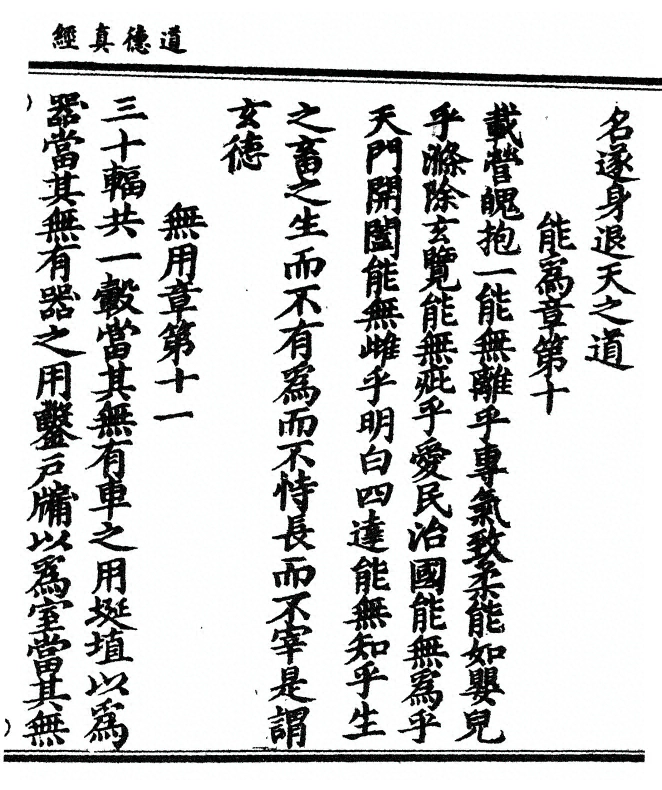 道德真經
名遂身退天之道
能為章第十
載營魄抱一能無離乎專氣致柔能如嬰兒
乎滌除玄覽能無疵乎愛民治國能無為乎
天門開闔能無雌乎明白四達能無知乎生
之畜之生而不有為而不恃長而不宰是謂
玄德
無用章第十一
三十輻共一轂當其無有車之用埏埴以為
器當其無有器之用鑿戶牖以為室當其無